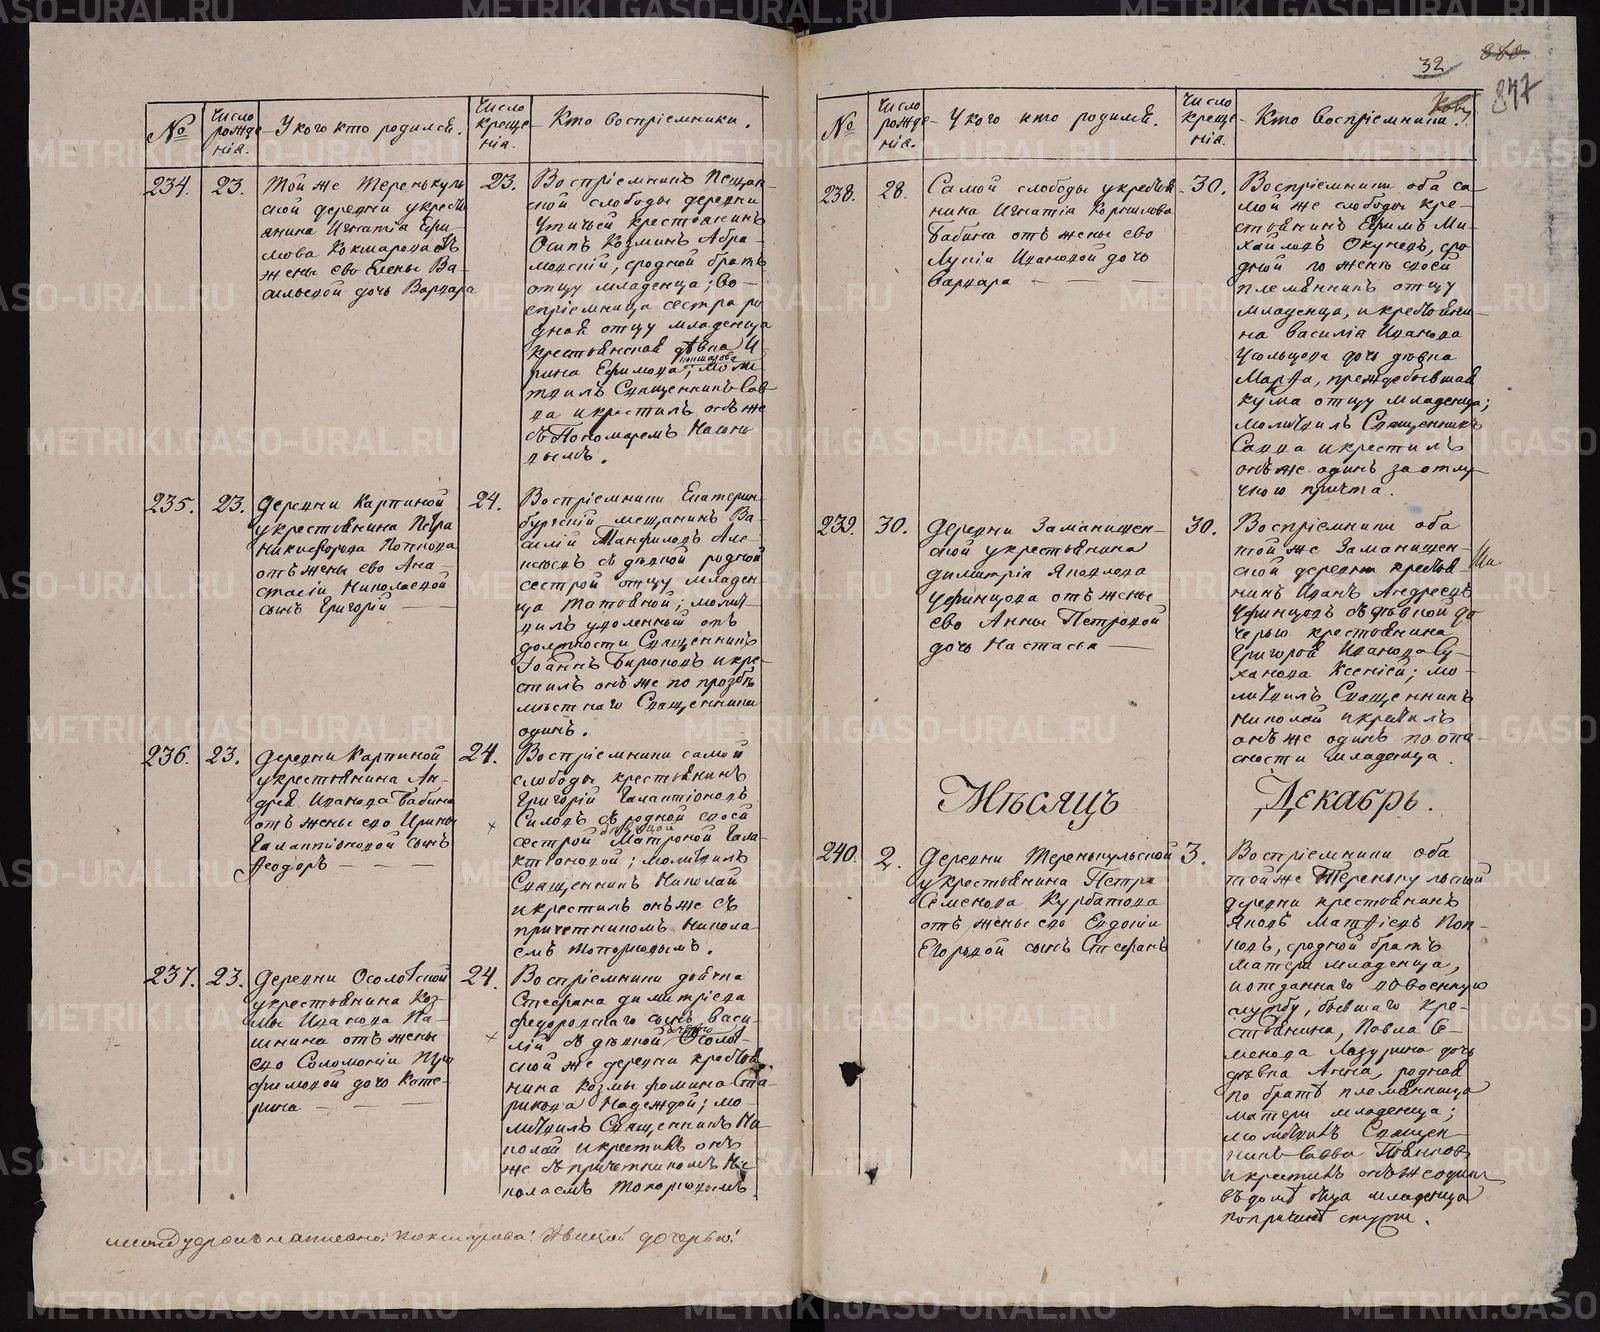 №
Число рожденія.
У кого кто родился.
Число крещенія.
Кто воспріемники.
234.
23.
Той же Теренькуль
ской деревни у кресть
янина Игнатія Ефи
мова Кокшарова отъ
жены ево Елены Ва
сильевой дочь Варвара
23.
Воспріемникъ Пещан
ской слободы деревни
Утичьей крестьянинъ
Осипъ Козминъ Абра
мовскій, сродной братъ
отцу младенца; во
спріемница сестра ро
дная отцу младенца
крестьянская дѣвка И
рина Ефимова; моли
твилъ Священникъ Сав
ва и крестилъ онъ же
съ Пономаремъ
235.
23.
Деревни Карпиной
у крестьянина Петра
Никифорова Попкова
отъ жены ево Ана
стасіи Николаевой
сынъ Григорій
24.
Воспріемники Екатерин
бургскій мещанинъ Ва
силій Панфиловъ Але
ксѣевъ съ родной
сестрой отцу младен
ца Татьяной; молит
вилъ уволенный отъ
должности Священникъ
Іоаннъ Бирюковъ и кре
стилъ онъ же по прозбѣ
мѣстнаго Священника
одинъ.
236.
23.
Деревни Карпиной
у крестьянина Ан
дрея Иванова Бабина
отъ жены ево Ирины
Галактіоновой сынъ
Ѳеодоръ
24.
Воспріемники самой
слободы крестьянинъ
Григорій Галактіоновъ
Силовъ съ родной своей
сестрой Матроной Гала
ктіоновой; молитвилъ
Священникъ Николай
и крестилъ онъ же съ
причетникомъ Никола
емъ Топорковымъ.
237.
23.
Деревни Осоловской
у крестьянина Коз
мы Иванова Па
шнина отъ жены
ево Соломоніи Пер
филовой дочь Кате
рина
24.
Воспріемники
Стефана Димитріева
Федоровскаго сынъ Васи
лій съ Осолов
ской же деревни крестья
нина Козмы Фомина Ста
рикова Надеждой; мо
литвилъ Священникъ Ни
колай и крестилъ онъ
же съ причетникомъ Ни
колаемъ Топорковымъ.
Кокшарова! дочерью!
32
847
№
Число рожденія.
У кого кто родился.
Число крещенія.
Кто воспріемники.
238.
28.
Самой слободы у крестья
нина Игнатія Корнилова
Бабина отъ жены ево
Лукіи Ивановой дочь
Варвара
30.
Воспріемники оба са
мой же слободы кре
стьянинъ Ефимъ Ми
хайловъ Окуневъ, сро
дной по женѣ своей
племянникъ отцу
младенца, и крестьяни
на Василія Иванова
Усольцова дочь дѣвка
Марѳа, преждебывшая
кума отцу младенца;
молитвилъ Священникъ
Савва и крестилъ
онъ же одинъ за отлу
чкою причта.
239.
30.
Деревни Заманишен
ской у крестьянина
Димитрія Яковлева
Уфинцова отъ жены
ево Анны Петровой
дочь Настасья
30.
Воспріемники оба
той же Заманишен
ской деревни крестья
нинъ Иванъ Андреевъ
Уфинцовъ съ дѣвкой до
черью крестьянина
Григорія Иванова Су
ханова Ксеніей; мо
литвилъ Священникъ
Николай и крестилъ
онъ же одинъ по опа
сности младенца.
Мѣсяцъ Декабрь.
240.
2.
Деревни Теренькульской
у крестьянина Петра
Семенова Курбатова
отъ жены ево Евдокіи
Егоровой сынъ Стефанъ
3.
Воспріемники оба
той же Теренькульской
деревни крестьянинъ
Яковъ Матвѣевъ Поп
ковъ, сродной братъ
матери младенца,
и отданнаго въ военную
службу, бывшаго кре
стьянина, Павла Се
менова Лазурина дочь
дѣвка Анна, родная
по братѣ племянница
матери младенца;
молитвилъ Священ
никъ Савва
и крестилъ онъ же одинъ
въ домѣ отца младенца
по причинѣ стужи.